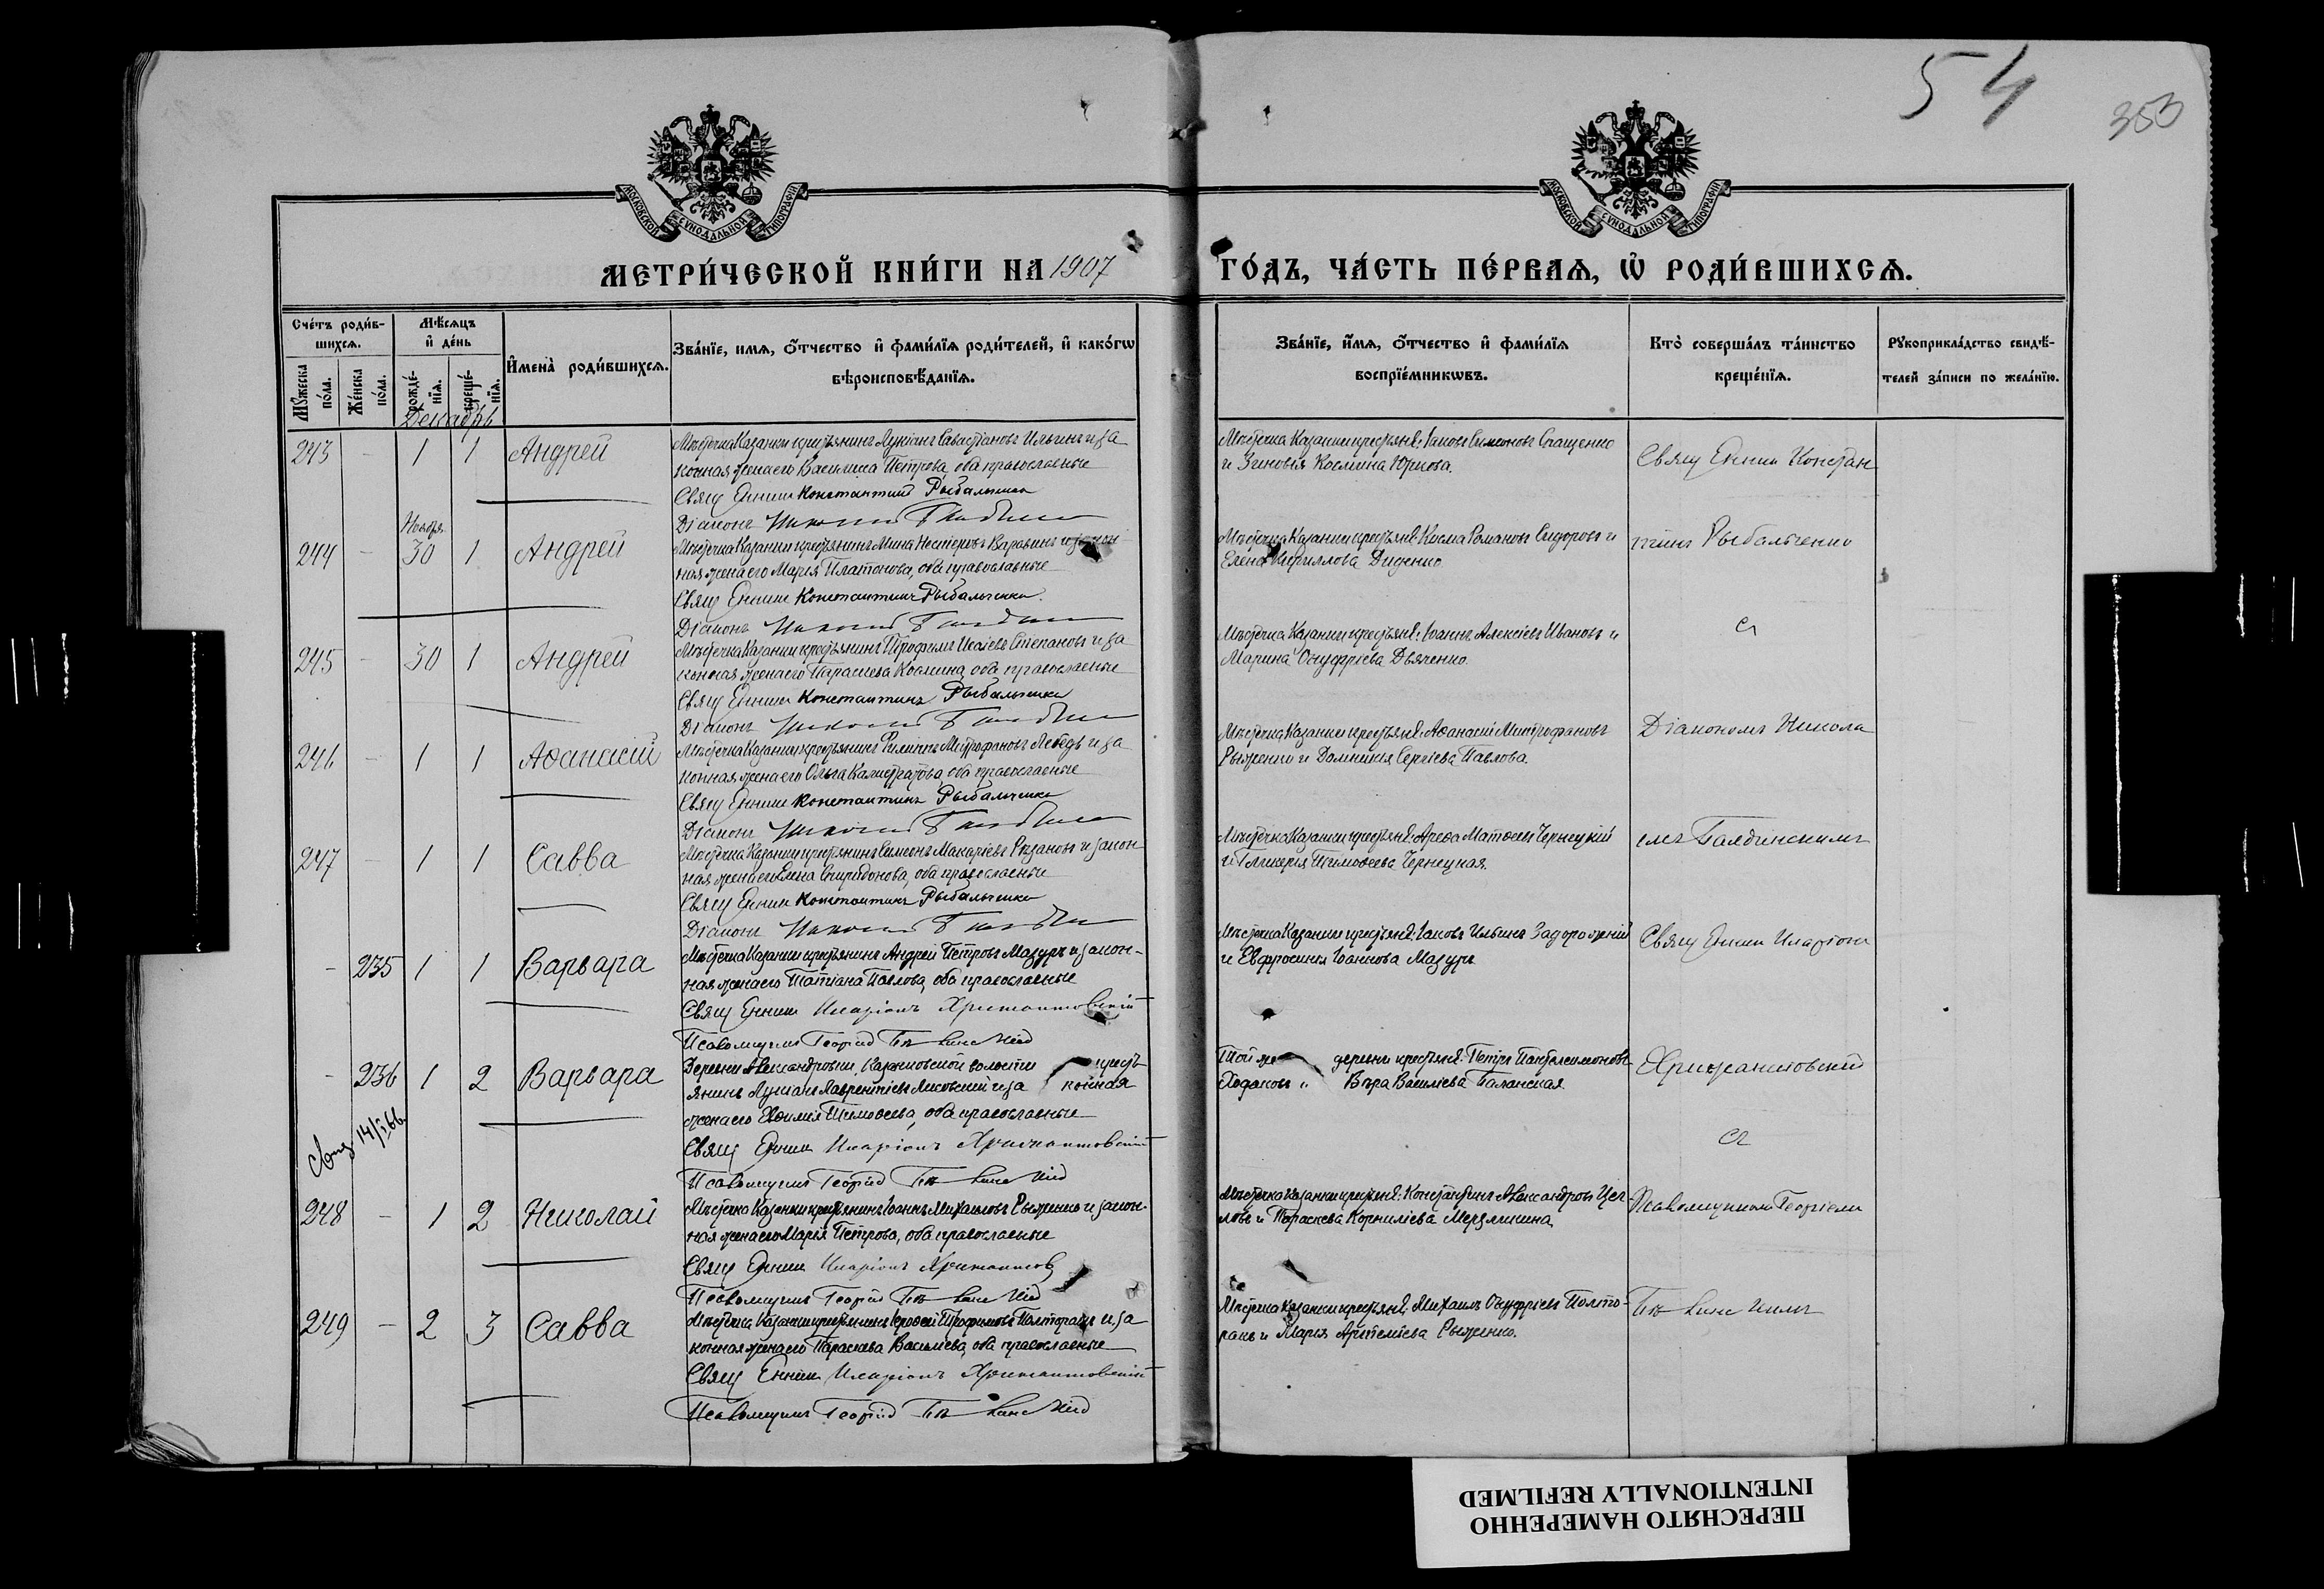 54
353
МОСКОВСКОЙ СѴНОДАЛЬНОЙ ТИПОГРАФІИ
МОСКОВСКОЙ СѴНОДАЛЬНОЙ ТИПОГРАФІИ
МЕТРИ́ЧЕСКОЙ КНИ́ГИ НА 1907 ГО́ДЪ, ЧА́СТЬ ПЕ́РВАѦ, Ѡ РОДИ́ВШИХСѦ.
Сче́тъ роди́в-
шихсѧ.
Мꙋ́жеска по́ла.
Же́нска по́ла.
Мѣ́сѧцъ
и҆ де́нь
рожде́-нїѧ.
креще́-нїѧ.
Декабрь
И҆мена̀ роди́вшихсѧ.
Зва́нїе, имѧ, ѻ҆́тчество и҆ фами́лїѧ роди́телей, и҆ како́гѡ
вѣроисповѣ́данїѧ.
Зва́нїе, и҆́мѧ, ѻ҆́тчество и҆ фами́лїѧ
воспрїе́мникѡвъ.
Кто̀ соверша́лъ та́инство
креще́нїѧ.
Рꙋкоприкла́дство свидѣ́-
телей за́писи по жела́нїю.
243 - 1 1 Андрей
Мѣстечка Казанки крестьянинъ Лукіанъ Савастіановъ Ильинъ и за
конная жена его Василиса Петрова, оба православные
Свящ Константинъ Рыбальченко
Діаконъ
Мѣстечка Казанки крестьяне: Іаковъ Симеоновъ Сващенко
и Зиновія Космина Юркова.
Свящ Констан
Ноября
244 - 30 1 Андрей
Мѣстечка Казанки крестьянинъ Мина Несторовъ Каравинъ и закон
ная жена его Марія Платонова, оба православные
Свящ Константинъ Рыбальченко.
Діаконъ
Мѣстечка Казанки крестьяне: Косма Романовъ Сидоровъ и
Елена Кириллова Диденко
тинъ Рыбальченко
245 - 30 1 Андрей
Мѣстечка Казанки крестьянинъ Трофимъ Исаіевъ Степановъ и за
конная жена его Параскева Космина, оба православные
Свящ Константинъ Рыбальченко
Діаконъ
Мѣстечка Казанки крестьяне: Іоаннъ Алексіевъ Ивановъ и
Марина Онуфріева Дьяченко.
съ
246 - 1 1 Аѳанасій
Мѣстечка Казанки крестьянинъ Филиппъ Митрофановъ Лебедь и за
конная жена его Ольга Калистратова, оба православные
Свящ Константинъ Рыбальченко
Діаконъ
Мѣстечка Казанки крестьяне: Аѳанасій Митрофановъ
Рыженко и Домникія Сергіева Павлова.
Діакономъ Никола
247 - 1 1 Савва
Мѣстечка Казанки крестьянинъ Симеонъ Макаріевъ Рязановъ и закон
ная жена его Елена Спиридонова, оба православные
Свящ Константинъ Рыбальченко
Діаконъ
Мѣстечка Казанки крестьяне: Ареѳа Матѳеевъ Чернецкій
и Гликерія Тимоѳеева Чернецкая.
емъ
- 235 1 1 Варвара
Мѣстечка Казанки крестьянинъ Андрей Петровъ Мазуръ и закон-
ная жена его Татіана Павлова, оба православные
Свящ Иларіонъ
Псаломщикъ Георгій
Мѣстечка Казанки крестьяне: Іаковъ Ильинъ Задорожній
и Евфросинія Іоаннова Мазуръ
Свящ Иларіонъ
- 236 1 2 Варвара
Деревни Александровки, волости кресть-
янинъ Лукіанъ Лаврентіевъ Лисовскій и за конная
жена его Евѳимія Тимоѳеева, оба православные
Свящ Иларіонъ
Псаломщикъ Георгій
Той же деревни крестьяне: Петръ Пантелеимоновъ
Ходаковъ и Вѣра Василіева Баланская
съ
248 - 1 2 Николай
Мѣстечка Казанки крестьянинъ Іоаннъ Михаиловъ Рыженко и закон-
ная жена его Марія Петрова, оба православные
Свящ Иларіонъ
Псаломщикъ Георгій
Мѣстечка Казанки крестьяне: Константинъ Александровъ
и Параскева Корниліева
Псаломщикомъ Георгіемъ
249 - 2 3 Савва
Мѣстечка Казанки крестьянинъ Іероѳей Трофимовъ Полторакъ и за
конная жена его Параскева Василіева, оба православные
Свящ Иларіонъ
Псаломщикъ Георгій
Мѣстечка Казанки крестьяне: Михаилъ Онуфріевъ Полто-
ракъ и Марія Артеміева Рыженко.
ПЕРЕСНЯТО НАМЕРЕННО
INTENTIONALLY REFILMED